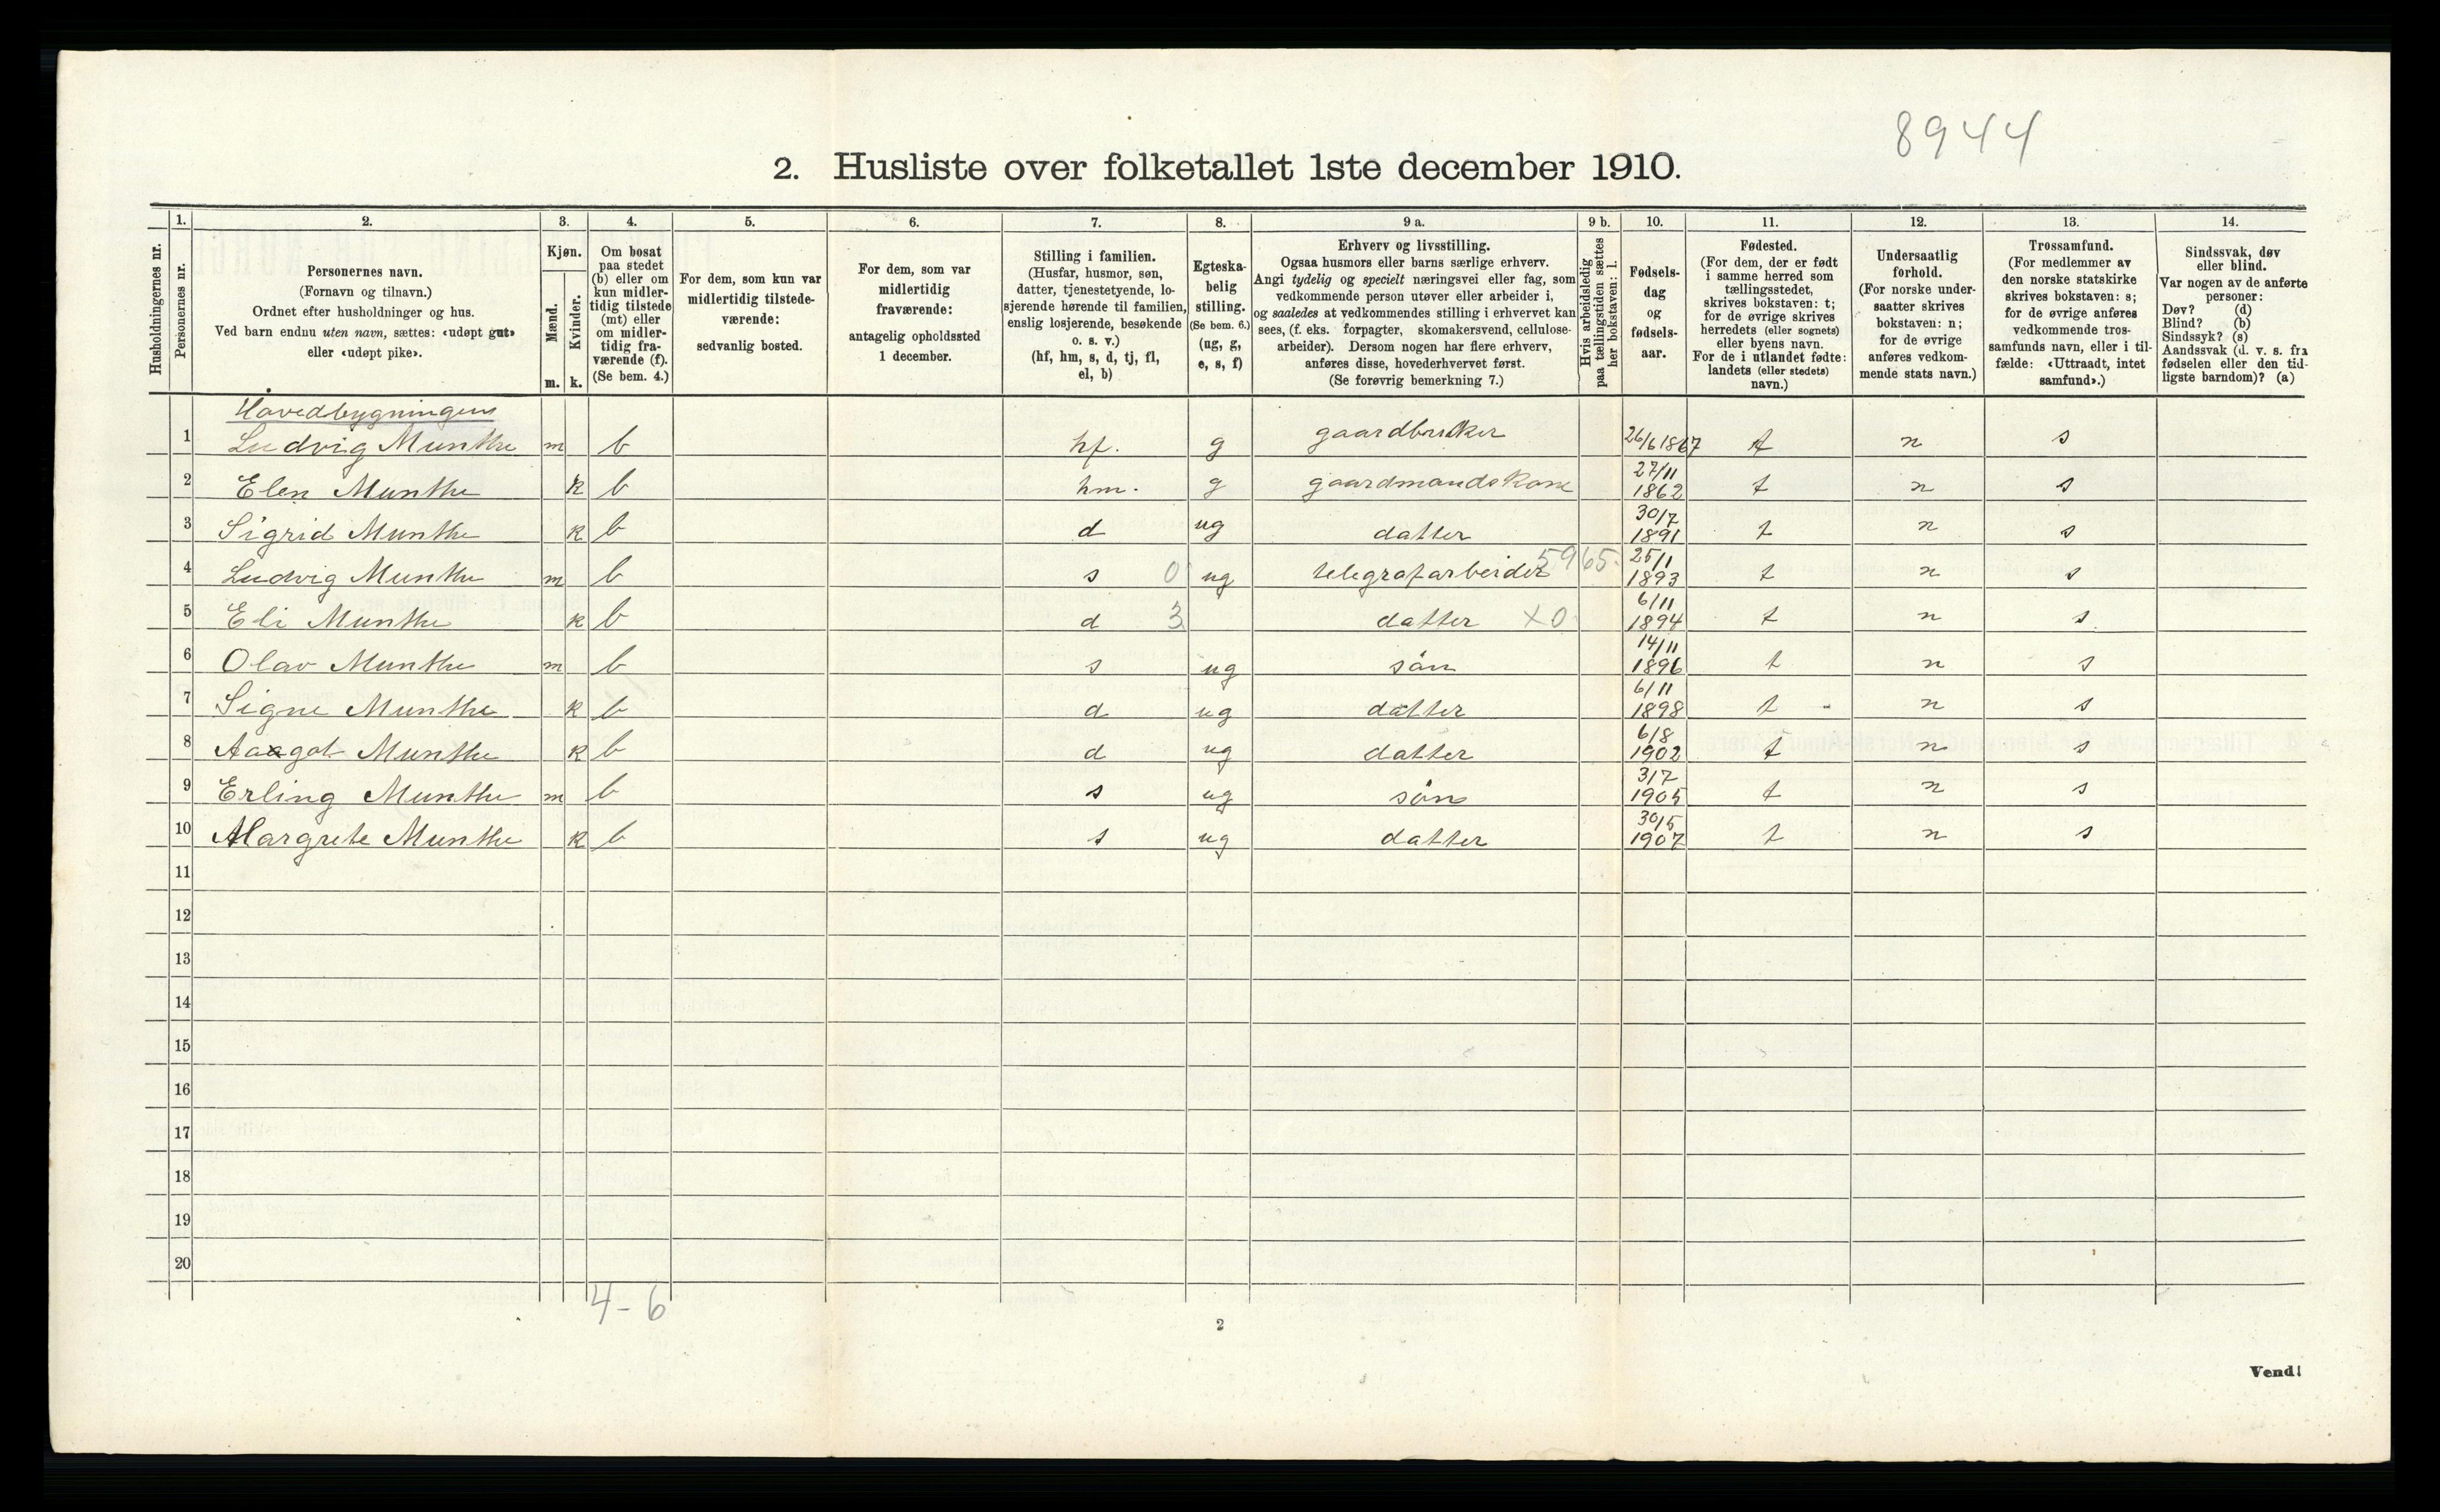 8944
2. Husliste over folketallet 1ste december 1910.
Husholdningernes nr.
1.
Personernes nr.
2.
Personernes navn.
(Fornavn og tilnavn.)
Ordnet efter husholdninger og hus.
Ved barn endnu uten navn, sættes: «udøpt gut»
eller «udøpt pike».
3.
Kjøn.
Mænd.
Kvinder.
m. k.
4.
Om bosat
paa stedet
(b) eller om
kun midler-
tidig tilstede
(mt) eller
om midler-
tidig fra-
værende (f).
(Se bem. 4.)
5.
For dem, som kun var
midlertidig tilstede-
værende:
sedvanlig bosted.
6.
For dem, som var
midlertidig
fraværende:
antagelig opholdssted
1 december.
7.
Stilling i familien.
(Husfar, husmor, søn,
datter, tjenestetyende, lo-
sjerende hørende til familien,
enslig losjerende, besøkende
o. s. v.)
(hf, hm, s, d, tj, fl,
el, b)
8.
Egteska-
belig
stilling.
(Se bem. 6.)
(ug, g,
e, s, f)
9 a.
Erhverv og livsstilling.
Ogsaa husmors eller barns særlige erhverv.
Angi tydelig og specielt næringsvei eller fag, som
vedkommende person utøver eller arbeider i,
og saaledes at vedkommendes stilling i erhvervet kan
sees, (f. eks. forpagter, skomakersvend, cellulose-
arbeider). Dersom nogen har flere erhverv,
anføres disse, hovederhvervet først.
(Se forøvrig bemerkning 7.)
9 b.
Hvis arbeidsledig
paa tællingstiden sættes
her bokstaven: l.
10.
Fødsels-
dag
og
fødsels-
aar.
11.
Fødested.
(For dem, der er født
i samme herred som
tællingsstedet,
skrives bokstaven: t;
for de øvrige skrives
herredets (eller sognets)
eller byens navn.
For de i utlandet fødte:
landets (eller stedets)
navn.)
12.
Undersaatlig
forhold.
(For norske under-
saatter skrives
bokstaven: n;
for de øvrige
anføres vedkom-
mende stats navn.)
13.
Trossamfund.
(For medlemmer av
den norske statskirke
skrives bokstaven: s;
for de øvrige anføres
vedkommende tros-
samfunds navn, eller i til-
fælde: «Uttraadt, intet
samfund».)
14.
Sindssvak, døv
eller blind.
Var nogen av de anførte
personer:
Døv? (d)
Blind? (b)
Sindssyk? (s)
Aandssvak (d. v. s. fra
fødselen eller den tid-
ligste barndom)? (a)
Hovedbygningen
1 Ludvig Munthe m b hf. g gaardbruker 26/6 1867 t n s
2 Elen Munthe k b hm. g gaardmandskone 27/11 1862 t n s
3 Sigrid Munthe k b d ug datter 30/7 1891 t n s
4 Ludvig Munthe m b s 0 ug telegrafarbeider 5965. 25/1 1893 t n s
5 Eli Munthe k b d 3 datter X0 6/11 1894 t n s
6 Olav Munthe m b s ug sön 14/11 1896 t n s
7 Signe Munthe k b d ug datter 6/11 1898 t n s
8 Aagot Munthe k b d ug datter 6/8 1902 t n s
9 Erling Munthe m b s ug sön 3/7 1905 t n s
10 Margrete Munthe k b s ug datter 30/5 1907 t n s
11
12
13
14
15
16
17
18
19
20
4-6
2
Vend!